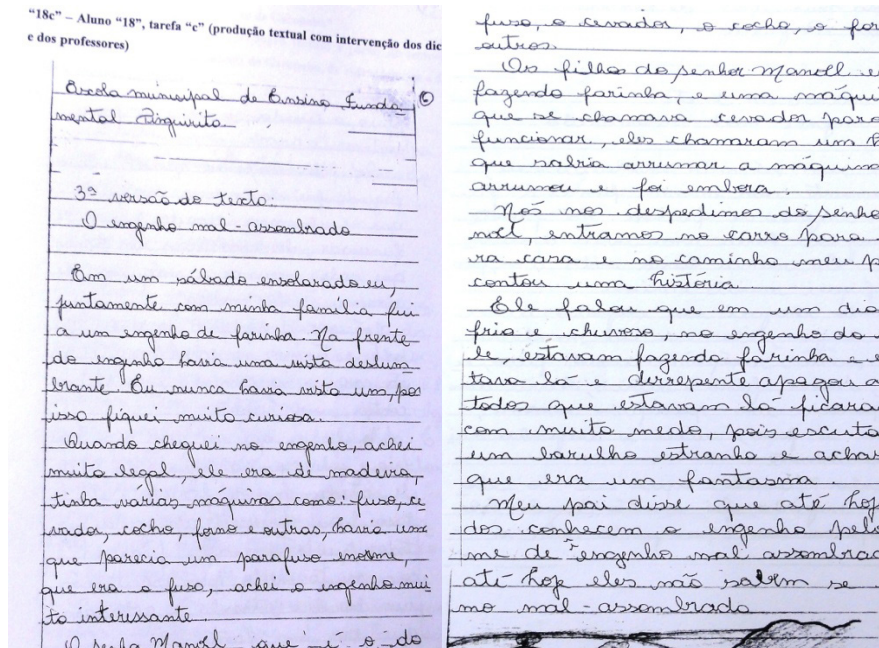 “18c” – Aluno “18”, tarefa “c” (produção textual com intervenção dos dic
e dos professores)
Escola municipal de Ensino Funda
mental Pinguirito
3ª versão do texto:
O engenho mal-assombrado
Em um sábado ensolarado eu,
juntamente com minha família fui
a um engenho de farinha. Na frente
do engenho havia uma vista deslum
brante. Eu nunca havia visto um, por
isso fiquei muito curiosa.
Quando cheguei no engenho, achei
muito legal, ele era de madeira,
tinha várias máquinas como: fuso, ce
vador, cocho, forno e outras, havia uma
que parecia um parafuso enorme,
que era o fuso, achei o engenho mui
to interessante.
O senho Manoel que é o do
fuso, o cevador, o cocho, o for
outros.
Os filhos do senhor Manoel e
fazendo farinha, e uma máqui
que se chamava cevador paro
funcionar, eles chamaram um h
que sabia arrumar a máquina
arrumou e foi embora.
Nós nos despedimos do senho
noel, entramos no carro para
ra casa e no caminho meu p
contou uma história.
Ele falou que em um dia
frio e chuvoso, no engenho do
le, estavam fazendo farinha e e
tava lá e derrepente apagou a
todos que estavam lá ficara
com muito medo, pois escuta
um barulho estranho e achar
que era um fantasma.
Meu pai disse que até hoje
dos conhecem o engenho pelo
me de "engenho mal assombrad
até hoje eles não sabem se
mo mal-assombrado